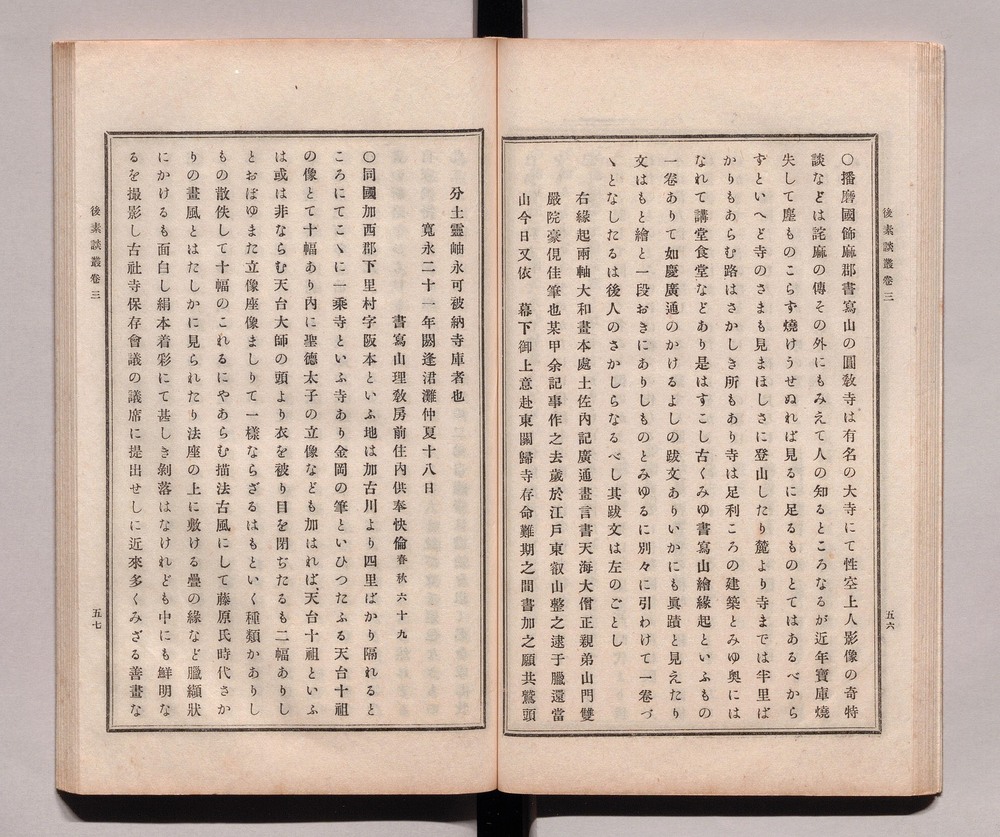 後素談叢卷三
五六
〇播磨國飾麻郡書寫山の圓敎寺は有名の大寺にて性空上人影像の奇特
談などは詫麻の傳その外にもみえて人の知るところなるが近年寶庫燒
失して塵ものこらず燒けうせぬれば見るに足るものとてはあるべから
ずといへど寺のさまも見まほしさに登山したり麓より寺までは半里ば
かりもあらむ路はさかしき所もあり寺は足利ころの建築とみゆ奥には
なれて講堂食堂などあり是はすこし古くみゆ書寫山繪緣起といふもの
一卷ありて如慶廣通のかけるよしの跋文ありいかにも眞蹟と見えたり
文はもと繪と一段おきにありしものとみゆるに別々に引わけて一卷づ
ヽとなしたるは後人のさかしらなるべし其跋文は左のごとし
右緣起兩軸大和畫本處土佐內記廣通畫言書天海大僧正親弟山門雙
嚴院豪俔佳筆也某甲余記事作之去歲於江戸東叡山整之逮于臘還當
山今日又依　幕下御上意赴東關歸寺存命難期之間書加之願共鷲頭
分土靈岫永可被納寺庫者也
寬永二十一年閼逢涒灘仲夏十八日
書寫山理敎房前住內供奉快倫春秋六十九
〇同國加西郡下里村字阪本といふ地は加古川より四里ばかり隔れると
ころにてこヽに一乘寺といふ寺あり金岡の筆といひつたふる天台十祖
の像とて十幅あり內に聖德太子の立像なども加はれば、天台十祖といふ
は或は非ならむ天台大師の頭より衣を被り目を閉ぢたるも二幅ありし
とおぼゆまた立像座像ましりて一樣ならざるはもといく種類かありし
もの散佚して十幅のこれるにやあらむ描法古風にして藤原氏時代さか
りの畫風とはたしかに見られたり法座の上に敷ける疊の緣など臘纈狀
にかけるも面白し絹本着彩にて甚しき剝落はなけれども中にも鮮明な
るを撮影し古社寺保存會議の議席に提出せしに近來多くみざる善畫な
後素談叢卷三
五七